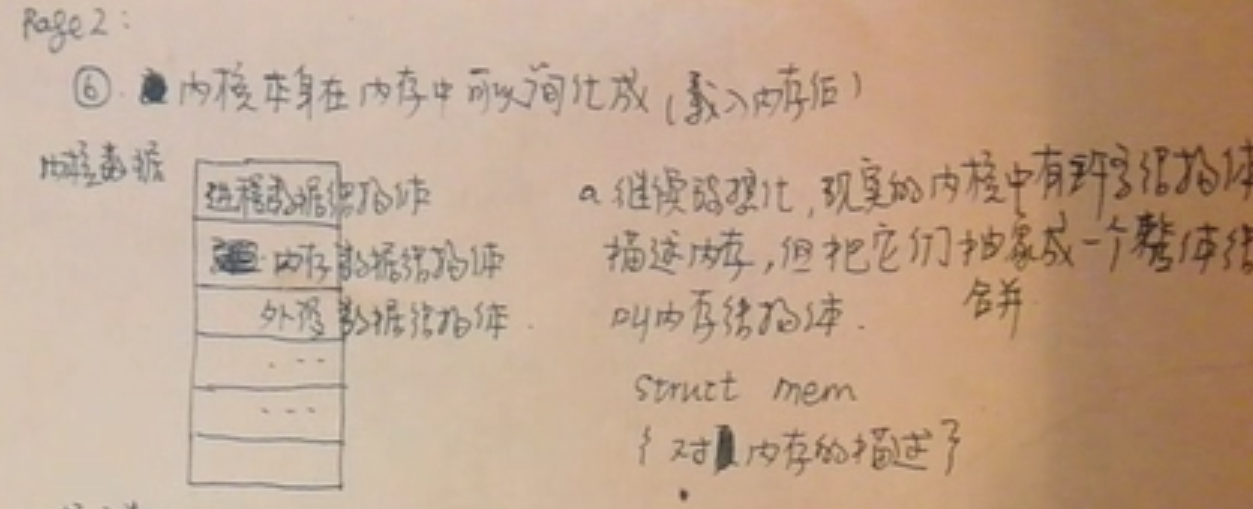 Page 2:
⑥. 内核本身在内存中可以简化成 (载入内存后)
内核数据
进程数据结构体
内存数据结构体
外设数据结构体.
. - -
- - -
a 继续理想化, 现实的内核中有许多结构体
描述内存, 但把它们抽象成一个整体结
合并
叫内存结构体.
struct mem
{ 对内存的描述 }